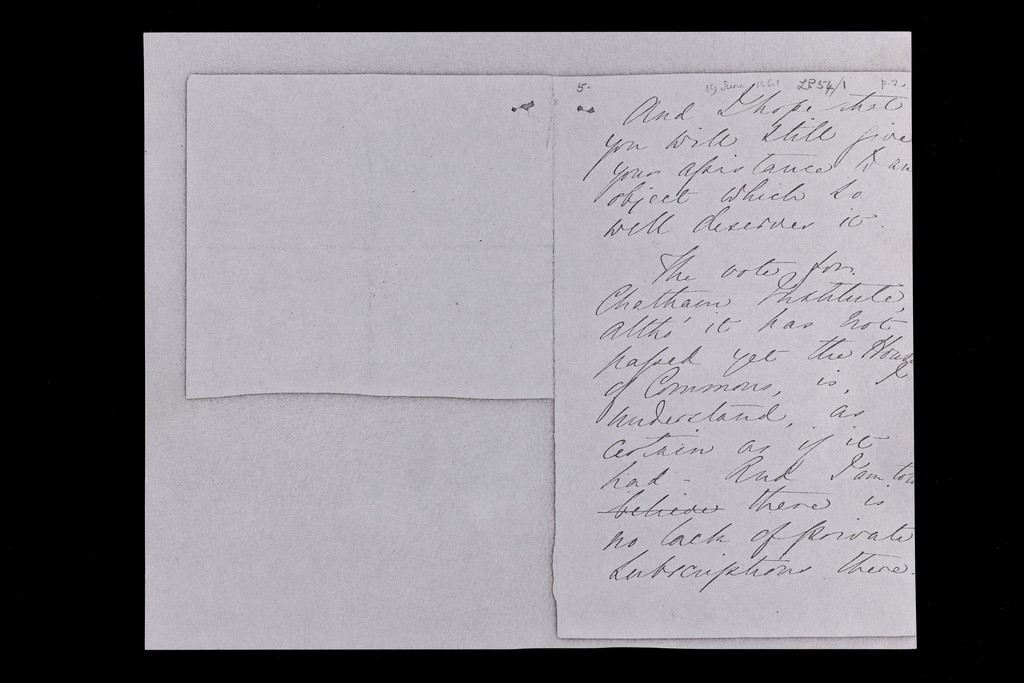 5. 19 June 1861 LP54/1 p.2.
And I hope that
you will still give
your assistance to an
object which so
well deserves it.
The vote for
Chatham Institute,
altho' it has not
passed yet the House
of Commons, is, I
understand, as
certain as if it
had - And I am told
believe there is
no lack of private
subscriptions there.